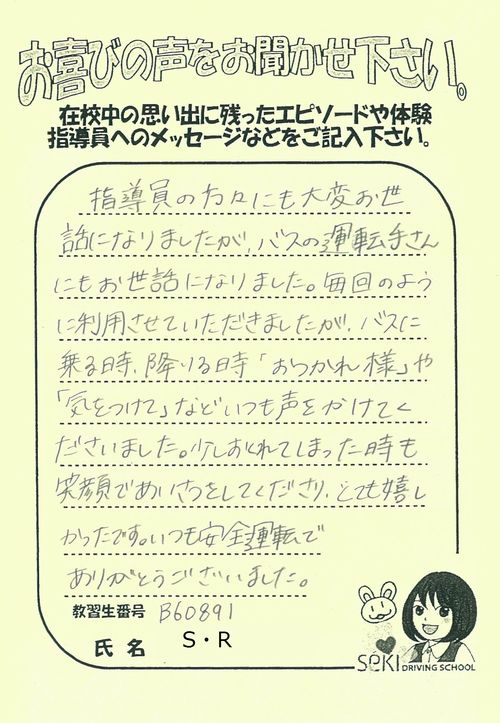 お喜びの声をお聞かせ下さい。
在校中の思い出に残ったエピソードや体験
指導員へのメッセージなどをご記入下さい。
指導員の方々にも大変お世
話になりましたが、バスの運転手さん
にもお世話になりました。毎回のよう
に利用させていただきましたが、バスに
乗る時、降りる時「おつかれ様」や
「気をつけて」などいつも声をかけてく
ださいました。少しおくれてしまった時も
笑顔であいさつをしてくださり、とても嬉し
かったです。いつも安全運転で
ありがとうございました。
教習生番号 B60891
氏名 S・R
SEKI DRIVING SCHOOL